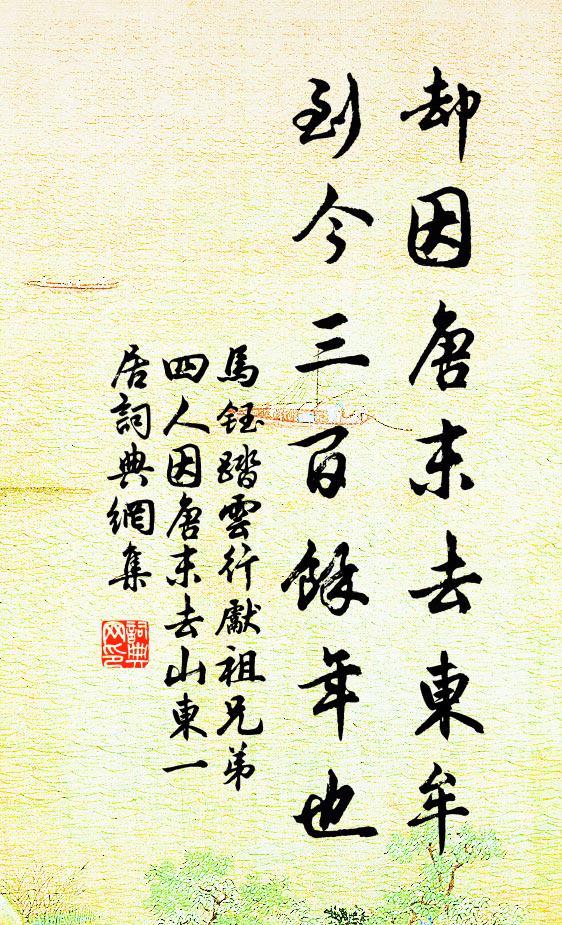 却因唐末去東牟
到今三百餘年也
馬鈺踏雲行獻祖兄弟
四人因唐末去山東一
居詞典網集
詞典
网印